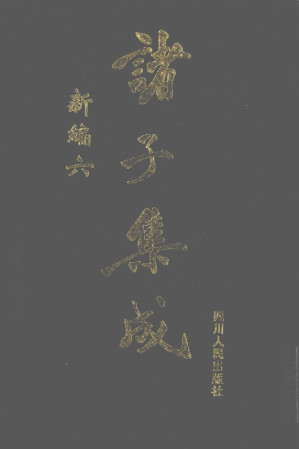 諸子集成
新編六
四川人民出版社